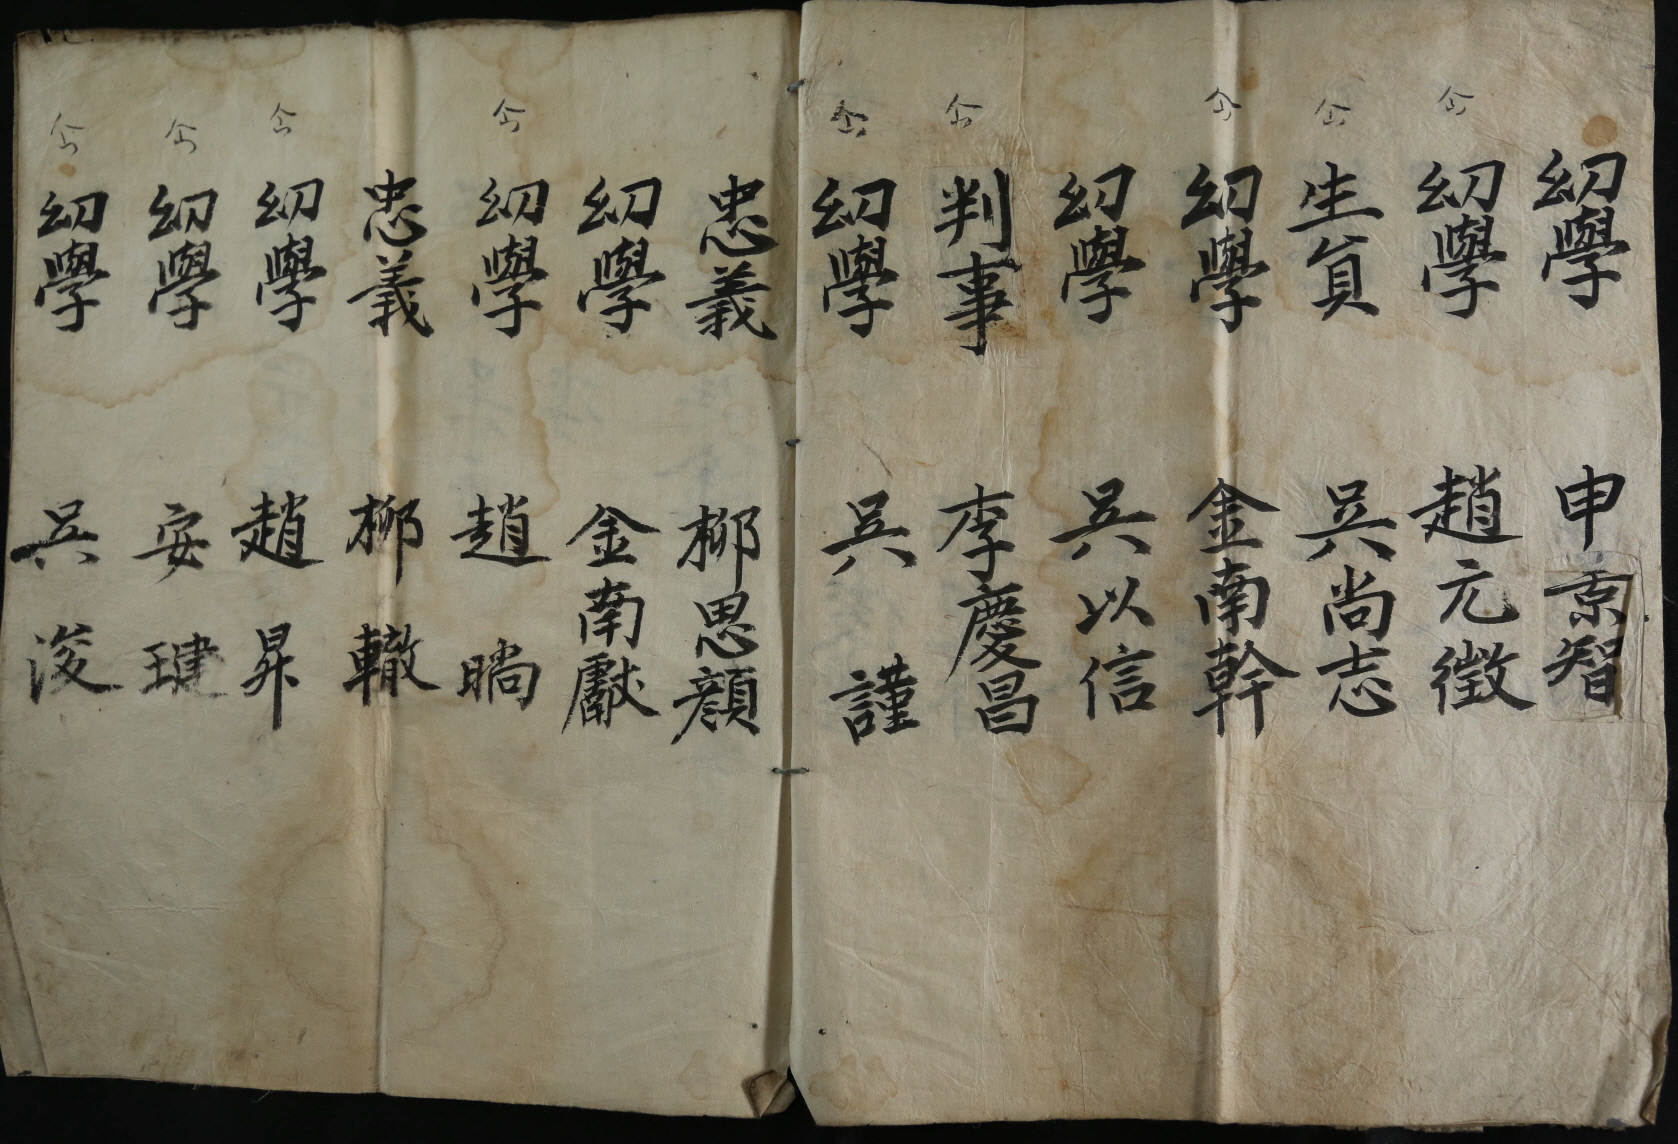 幼學 申景智
幼學 趙元徵
生員 吳尚志
幼學 金南幹
幼學 吳以信
判事 李慶昌
幼學 吳謹
忠義 柳思顔
幼學 金南獻
幼學 趙暻
忠義 柳轍
幼學 趙昇
幼學 安琎
幼學 吳浚